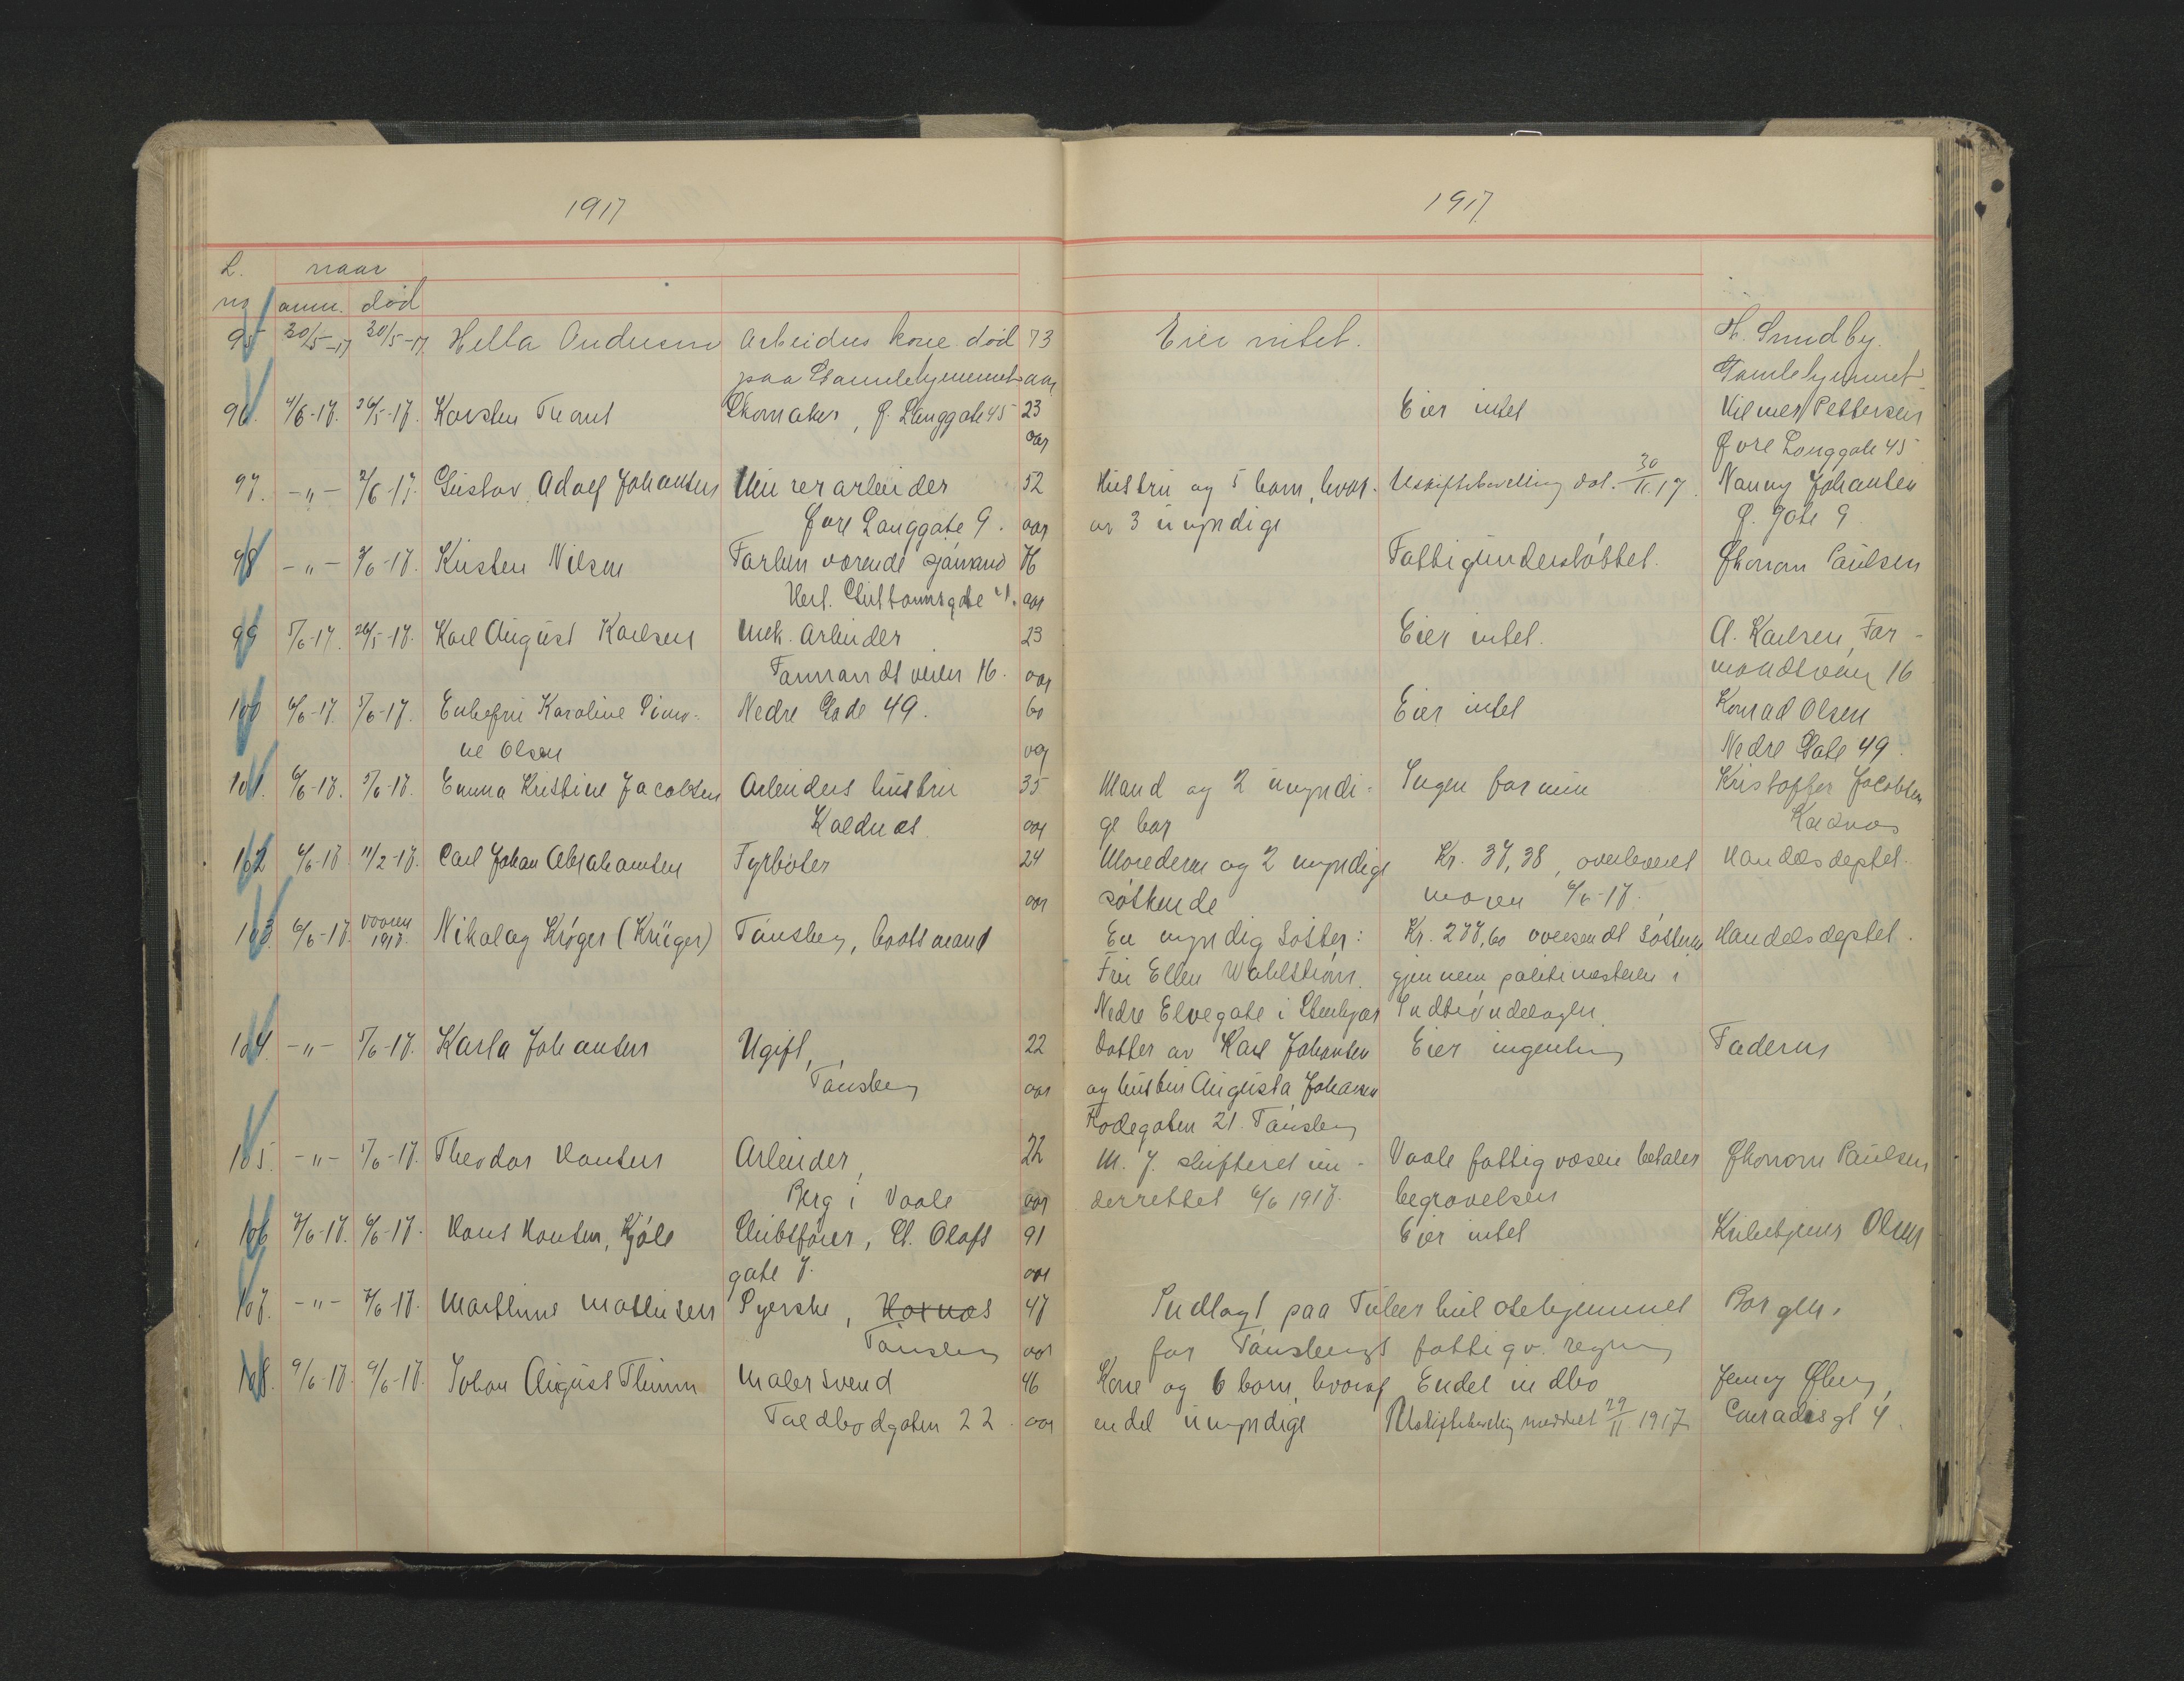 1917
1917
L. naar
nr anm. død
95 30/5-17 30/5-17. Hella Andersen Arbeiders kone død 73 Eier intet. H. Sundby.
paa Gamlehjemmet aar Gamlehjemmet
96. 4/6-17. 26/5-17. Karsten Trant Skomaker, Ø. Langgate 45 23 Eier intet Vilmer Pettersen
aar Øvre Langgate 45
97. -"- 2/6-17. Gustav Adolf Johansen Murerarbeider 52 Hustru og 5 barn, hvor- Uskiftebevilling dat. 30/11.17. Nanny Johansen
Øvre Langgate 9. aar av 3 umyndige Ø. Gate 9
98 -"- 3/6-17. Kristen Nilsen Forhen værende sjømand Fattigunderstøttet. Økonom Paulsen
aar
99 5/6-17. 26/5-17. Karl August Karlsen Mek. arbeider 23 Eier intet. A. Karlsen, Far-
Farmandsveien 16. aar mandsveien 16
100 6/6-17. 5/6-17. Enkefru Karoline Simo- Nedre Gade 49. 60 Eier intet Konrad Olsen
ne Olsen aar Nedre Gate 49.
101. 6/6-17. 5/6-17. Emma Kristine Jacobsen Arbeiders hustru 35 Mand og 2 umyndi- Ingen formue Kristoffer Jacobsen
Kaldnæs. aar ge bar Kaldnæs
102 6/6-17 11/2-17. Carl Johan Abrahamsen Fyrbøter 24 Moderen og 2 umyndige Kr. 37,38, overleveret Handelsdeptet.
aar søskende moren 6/6-17.
103. 6/6-17 vaaren 1917. Nikolay Krøger (Krüger) Tønsberg, baatsmand En myndig søster: Kr. 277,60 oversendt søsteren Handelsdeptet.
Fru Ellen Wahlstrøm. gjennem politimesteren i
Nedre Elvegate i Stenkjær Indtrøndelagen.
104. -"- 5/6-17. Karla Johansen Ugift, 22 Datter av Karl Johansen Eier ingenting Faderen
Tønsberg aar og hustru Augusta Johansen
Kodegaten 21. Tønsberg
105. -"- 5/6-17. Theodor Hansen Arbeider, 22 M. J. skifteret un- Vaale fattigvæsen betaler Økonom Paulsen
Berg i Vaale aar derrettet 6/6 1917. begravelsen
106 7/6-17. 6/6-17. Hans Hansen, Kjøle Skibsfører, St. Olafs 91 Eier intet Olsen
gate 7. aar
107. -"- 7/6-17. Marthine Mathisen Syerske, Hoxnæs 47 Indlagt paa Tuberkulosehjemmet Borgen.
Tønsberg aar for Tønsbergs fattigv. regning
108. 9/6-17. 9/6-17. Johan August Thimm Malersvend 46 Kone og 6 barn, hvorav Endel indbo Jenny Øberg,
Toldbodgaten 22. aar endel umyndige Uskiftebevilling meddelt 29/11 1917 Conradisgt 4.